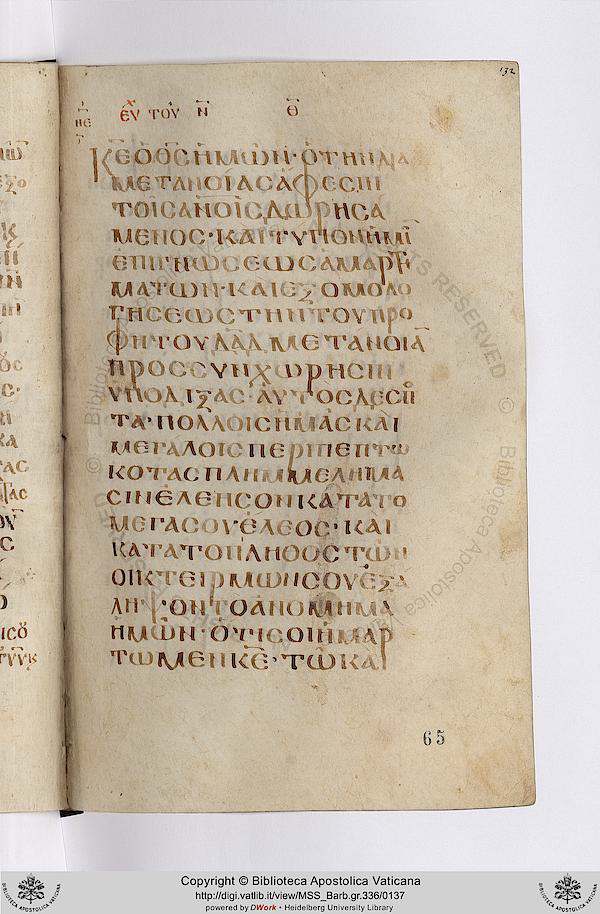 132
ΕΥ ΤΟΥ Ν Θ
ΚΕΟΘΣΗΜΩΝ·ΟΤΗΝΔΙΑ
ΜΕΤΑΝΟΙΑΣΑΦΕΣΙΝ
ΤΟΙΣΑΝΟΙΣΔΩΡΗΣΑ
ΜΕΝΟΣ·ΚΑΙΤΥΠΟΝΗΜΙ
ΕΠΙΓΝΩΣΕΩΣΑΜΑΡΤΗ
ΜΑΤΩΝ·ΚΑΙΕΞΟΜΟΛΟ
ΓΗΣΕΩΣΤΗΝΤΟΥΠΡΟ
ΦΗΤΟΥΔΑΔΜΕΤΑΝΟΙΑ
ΠΡΟΣΣΥΝΧΩΡΗΣΙΝ
ΥΠΟΔΙΞΑΣ·ΑΥΤΟΣΔΕΣΠ
ΤΑ·ΠΟΛΛΟΙΣΗΜΑΣΚΑΙ
ΜΕΓΑΛΟΙΣΠΕΡΙΠΕΠΤΩ
ΚΟΤΑΣΠΛΗΜΜΕΛΗΜΑ
ΣΙΝΕΛΕΗΣΟΝΚΑΤΑΤΟ
ΜΕΓΑΣΟΥΕΛΕΟΣ·ΚΑΙ
ΚΑΤΑΤΟΠΛΗΘΟΣΤΩΝ
ΟΙΚΤΕΙΡΜΩΝΣΟΥΕΞΑ
ΛΗΨΟΝΤΟΑΝΟΜΗΜΑ
ΗΜΩΝ·ΟΤΙΣΟΙΗΜΑΡ
ΤΩΜΕΝΚΕ·ΤΩΚΑΙ
65
Copyright © Biblioteca Apostolica Vaticana
http://digi.vatlib.it/view/MSS_Barb.gr.336/0137
powered by DWork - Heidelberg University Library